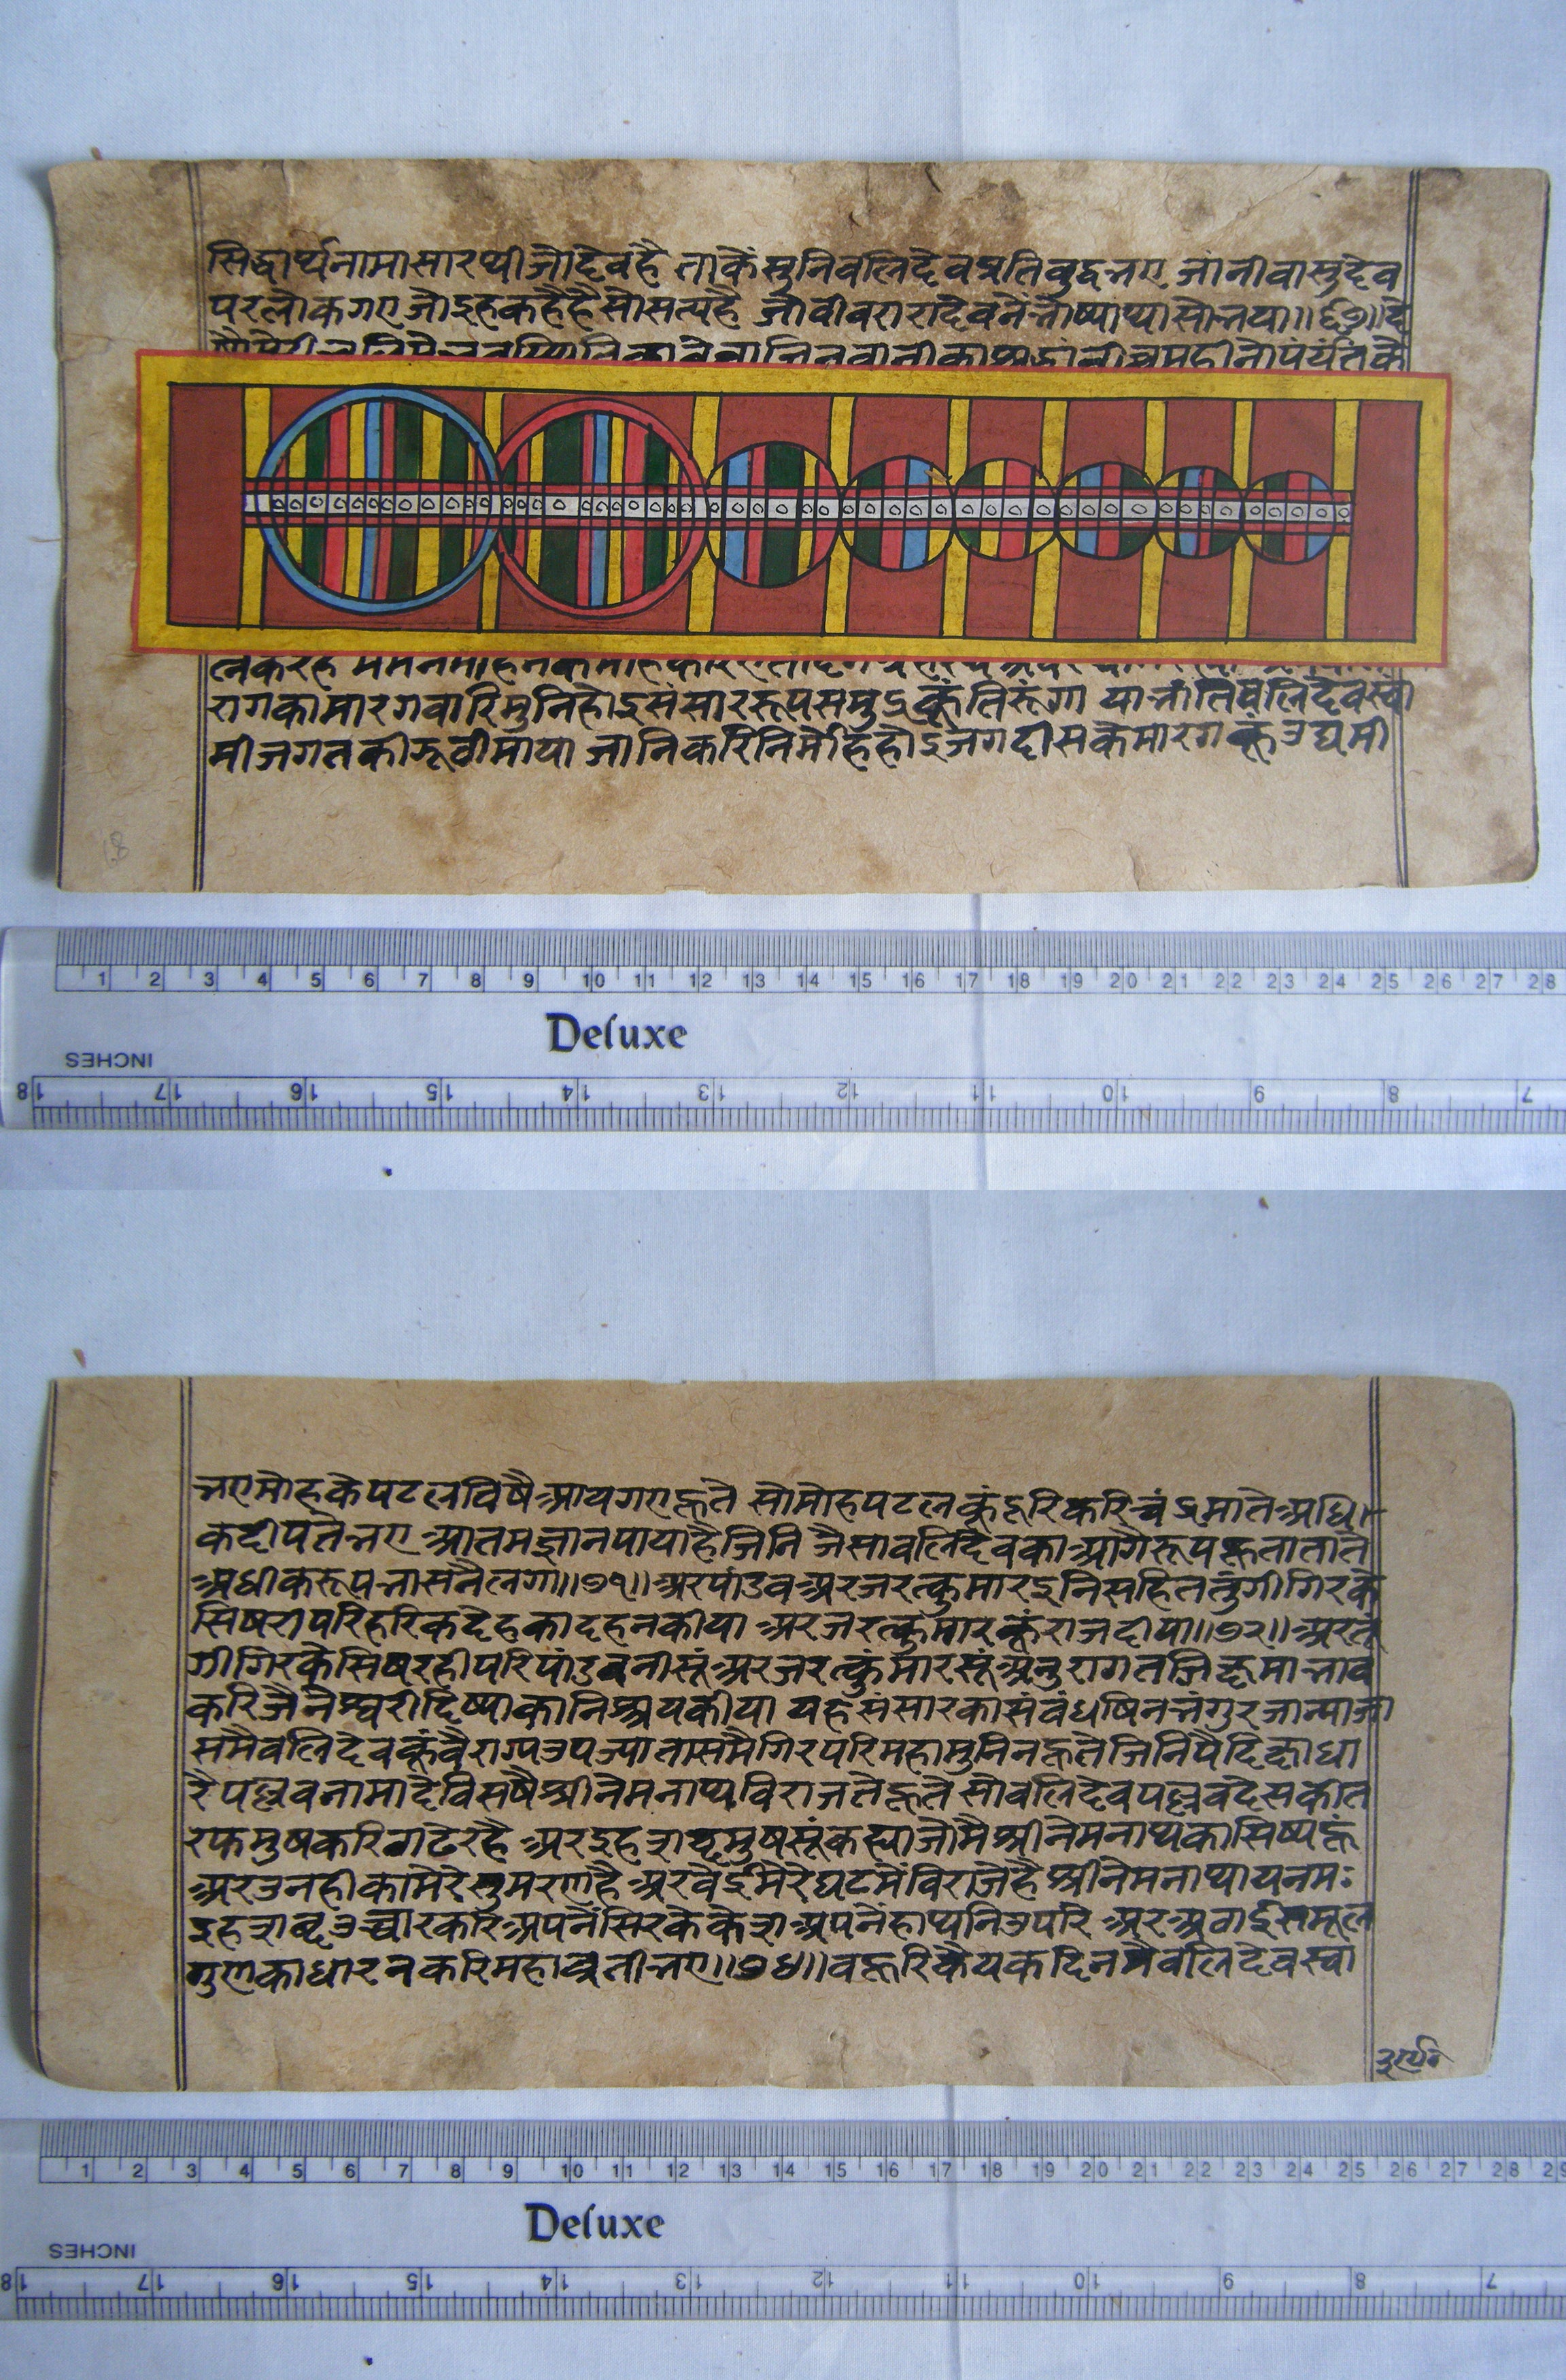 सिद्धार्थनामासारथीजोदेवहै ताकैंसुनिवलिदेवप्रतिवुद्धभए जांनीवासुदेव
परलोकगएजोइहकहैहैसोसत्यहै
महीनोपर्यंतकै
रागकामारगवारिमुनिहोइसंसाररूपसमुद्रकूंतिरूंगा याभांतिवलिदेवस्वा
मीजगतकीझूठीमाया जानिकरिनिर्मोहिहोइजगदीसकेमारगकूंउद्यमी
1 2 3 4 5 6 7 8 9 10 11 12 13 14 15 16 17 18 19 20 21 22 23 24 25 26 27 28
Deluxe
INCHES
18 17 16 15 14 13 12 11 10 9 8 7
भएमोहकेपटलविषैआयगएहूते सोमोहपटलकूंदूरिकरिचंद्रमातैअधि
कदीपतेभए आतमज्ञानपायाहैजिनि जैसावलिदेवकाआगैरूपहूतातातै
अधीकरूपभासनैलगा॥७१॥अरपांडवअरजरत्कुमारइनिसहिततुंगीगिरके
सिषरीपरिहरिकैदेहकादहनकीया अरजरत्कुमारकूंराजदीया॥७२॥अरतुं
गीगिरकैसिषरहीपरिपांडवनीसूंअरजरत्कुंमारसूंअनुरागतजिक्षमाभाव
करिजैनैस्वरीदिष्याकानिश्चयकीया यहसंसारकासंवंधषिनभंगुरजान्याजा
समैवलिदेवकूंवैराग्यउपज्यातासमैगिरपरिमहामुनिनहूतेजिनिपैदिक्षाधा
रैपल्लवनामादेविसषैश्रीनेमनाथविराजतेहूते सोवलिदेवपल्लवदेसकीत
रफमुषकरिठाढेरहै अरइहशब्दमुषसूंकह्याजोमैश्रीनेमनाथकासिष्यहूं
अरउनहीकामेरेसुमरणहैअरवैईमेरेघटमैंविराजैहैश्रीनेमनाथायनमः
इहशब्दउच्चारकरिअपनैसिरकेकेशअपनेहाथनिउपरि अरअठाईसमूल
गुणकाधारनकरिमहाव्रतीभए॥७४॥वहूरियेकदिनमैवलिदेवस्वा
1 2 3 4 5 6 7 8 9 10 11 12 13 14 15 16 17 18 19 20 21 22 23 24 25 26 27 28 29
Deluxe
INCHES
18 17 16 15 14 13 12 11 10 9 8 7